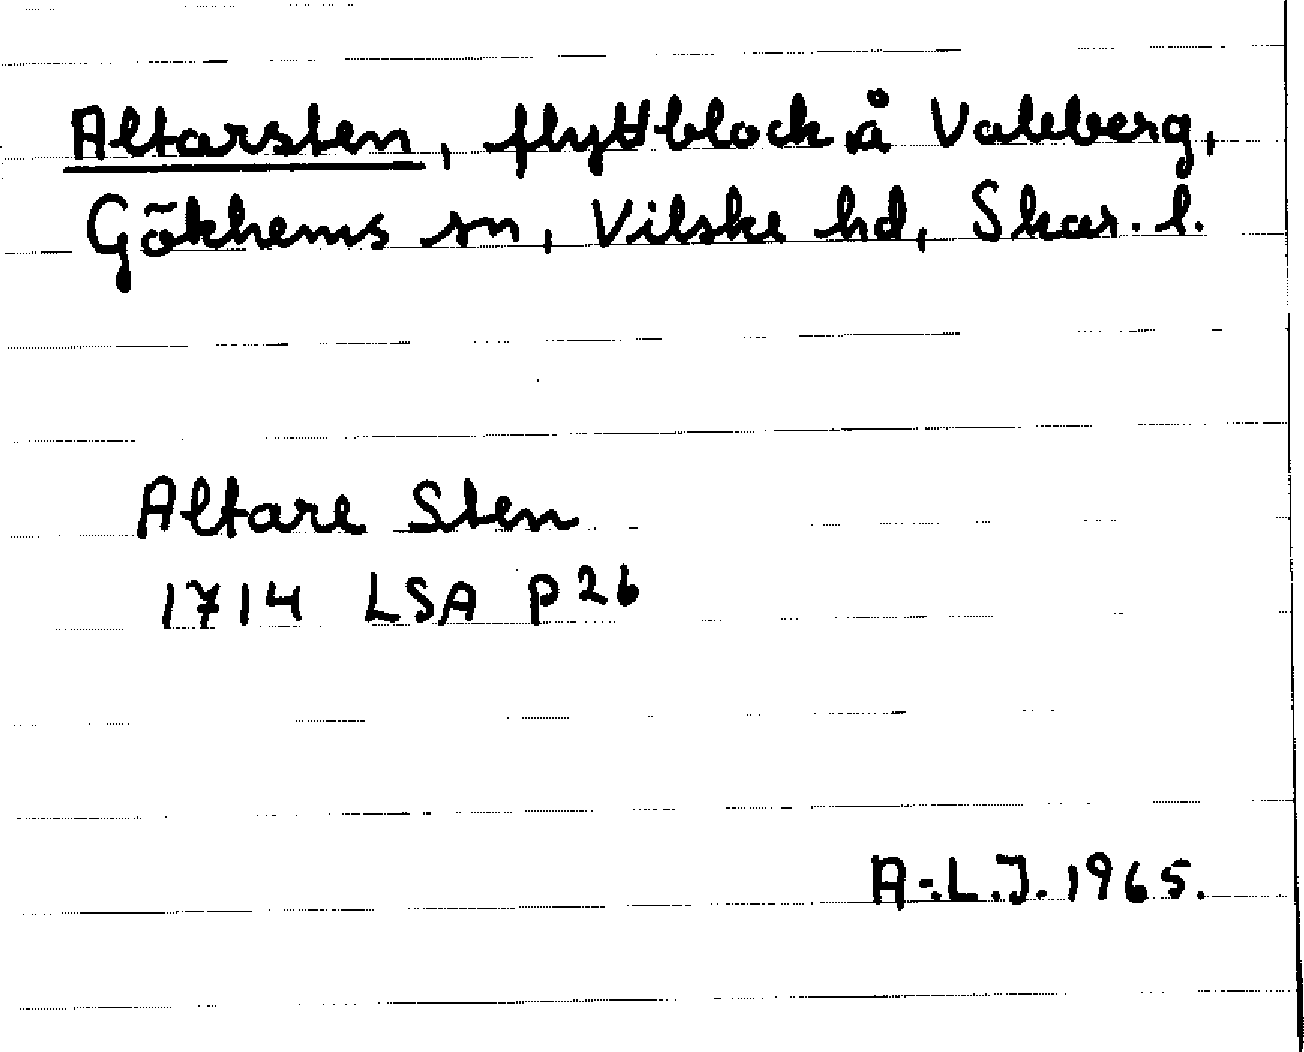 Altarsten, flyttblock å
Gökhems sn, Vilske hd, Skar. l.
Altare Sten
1714 LSA P26
A-.L.J. 1965.